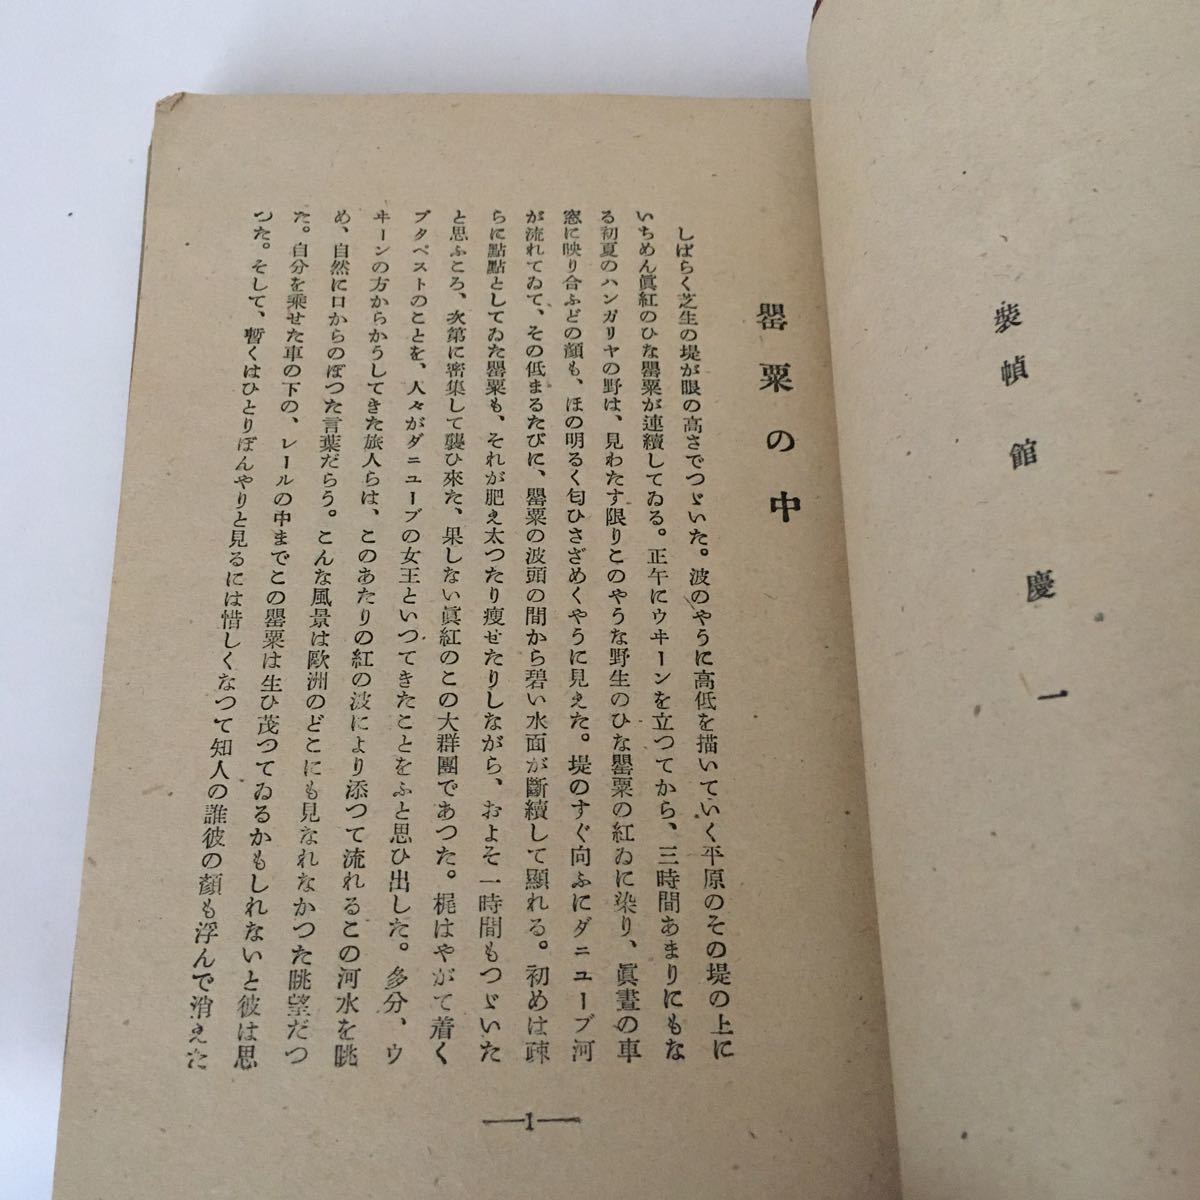 裝幀館慶一
罌粟の中
しばらく芝生の堤が眼の高さでつゞいた。波のやうに高低を描いていく平原のその堤の上に
いちめん眞紅のひな罌粟が連續してゐる。正午にウヰーンを立つてから、三時間あまりにもな
る初夏のハンガリヤの野は、見わたす限りこのやうな野生のひな罌粟の紅ゐに染り、眞晝の車
窓に映り合ふどの顏も、ほの明るく匂ひさざめくやうに見えた。堤のすぐ向ふにダニユーブ河
が流れてゐて、その低まるたびに、罌粟の波頭の間から碧い水面が斷續して顯れる。初めは疎
らに點點としてゐた罌粟も、それが肥え太つたり瘦せたりしながら、およそ一時間もつゞいた
と思ふころ、次第に密集して襲ひ來た、果しない眞紅のこの大群團であつた。梶はやがて着く
ブタペストのことを、人々がダニユーブの女王といつてきたことをふと思ひ出した。多分、ウ
ヰーンの方からかうしてきた旅人らは、このあたりの紅の波により添つて流れるこの河水を眺
め、自然に口からのぼつた言葉だらう。こんな風景は歐洲のどこにも見なれなかつた眺望だつ
た。自分を乘せた車の下の、レールの中までこの罌粟は生ひ茂つてゐるかもしれないと彼は思
つた。そして、暫くはひとりぼんやりと見るには惜しくなつて知人の誰彼の顏も浮んで消えた
1